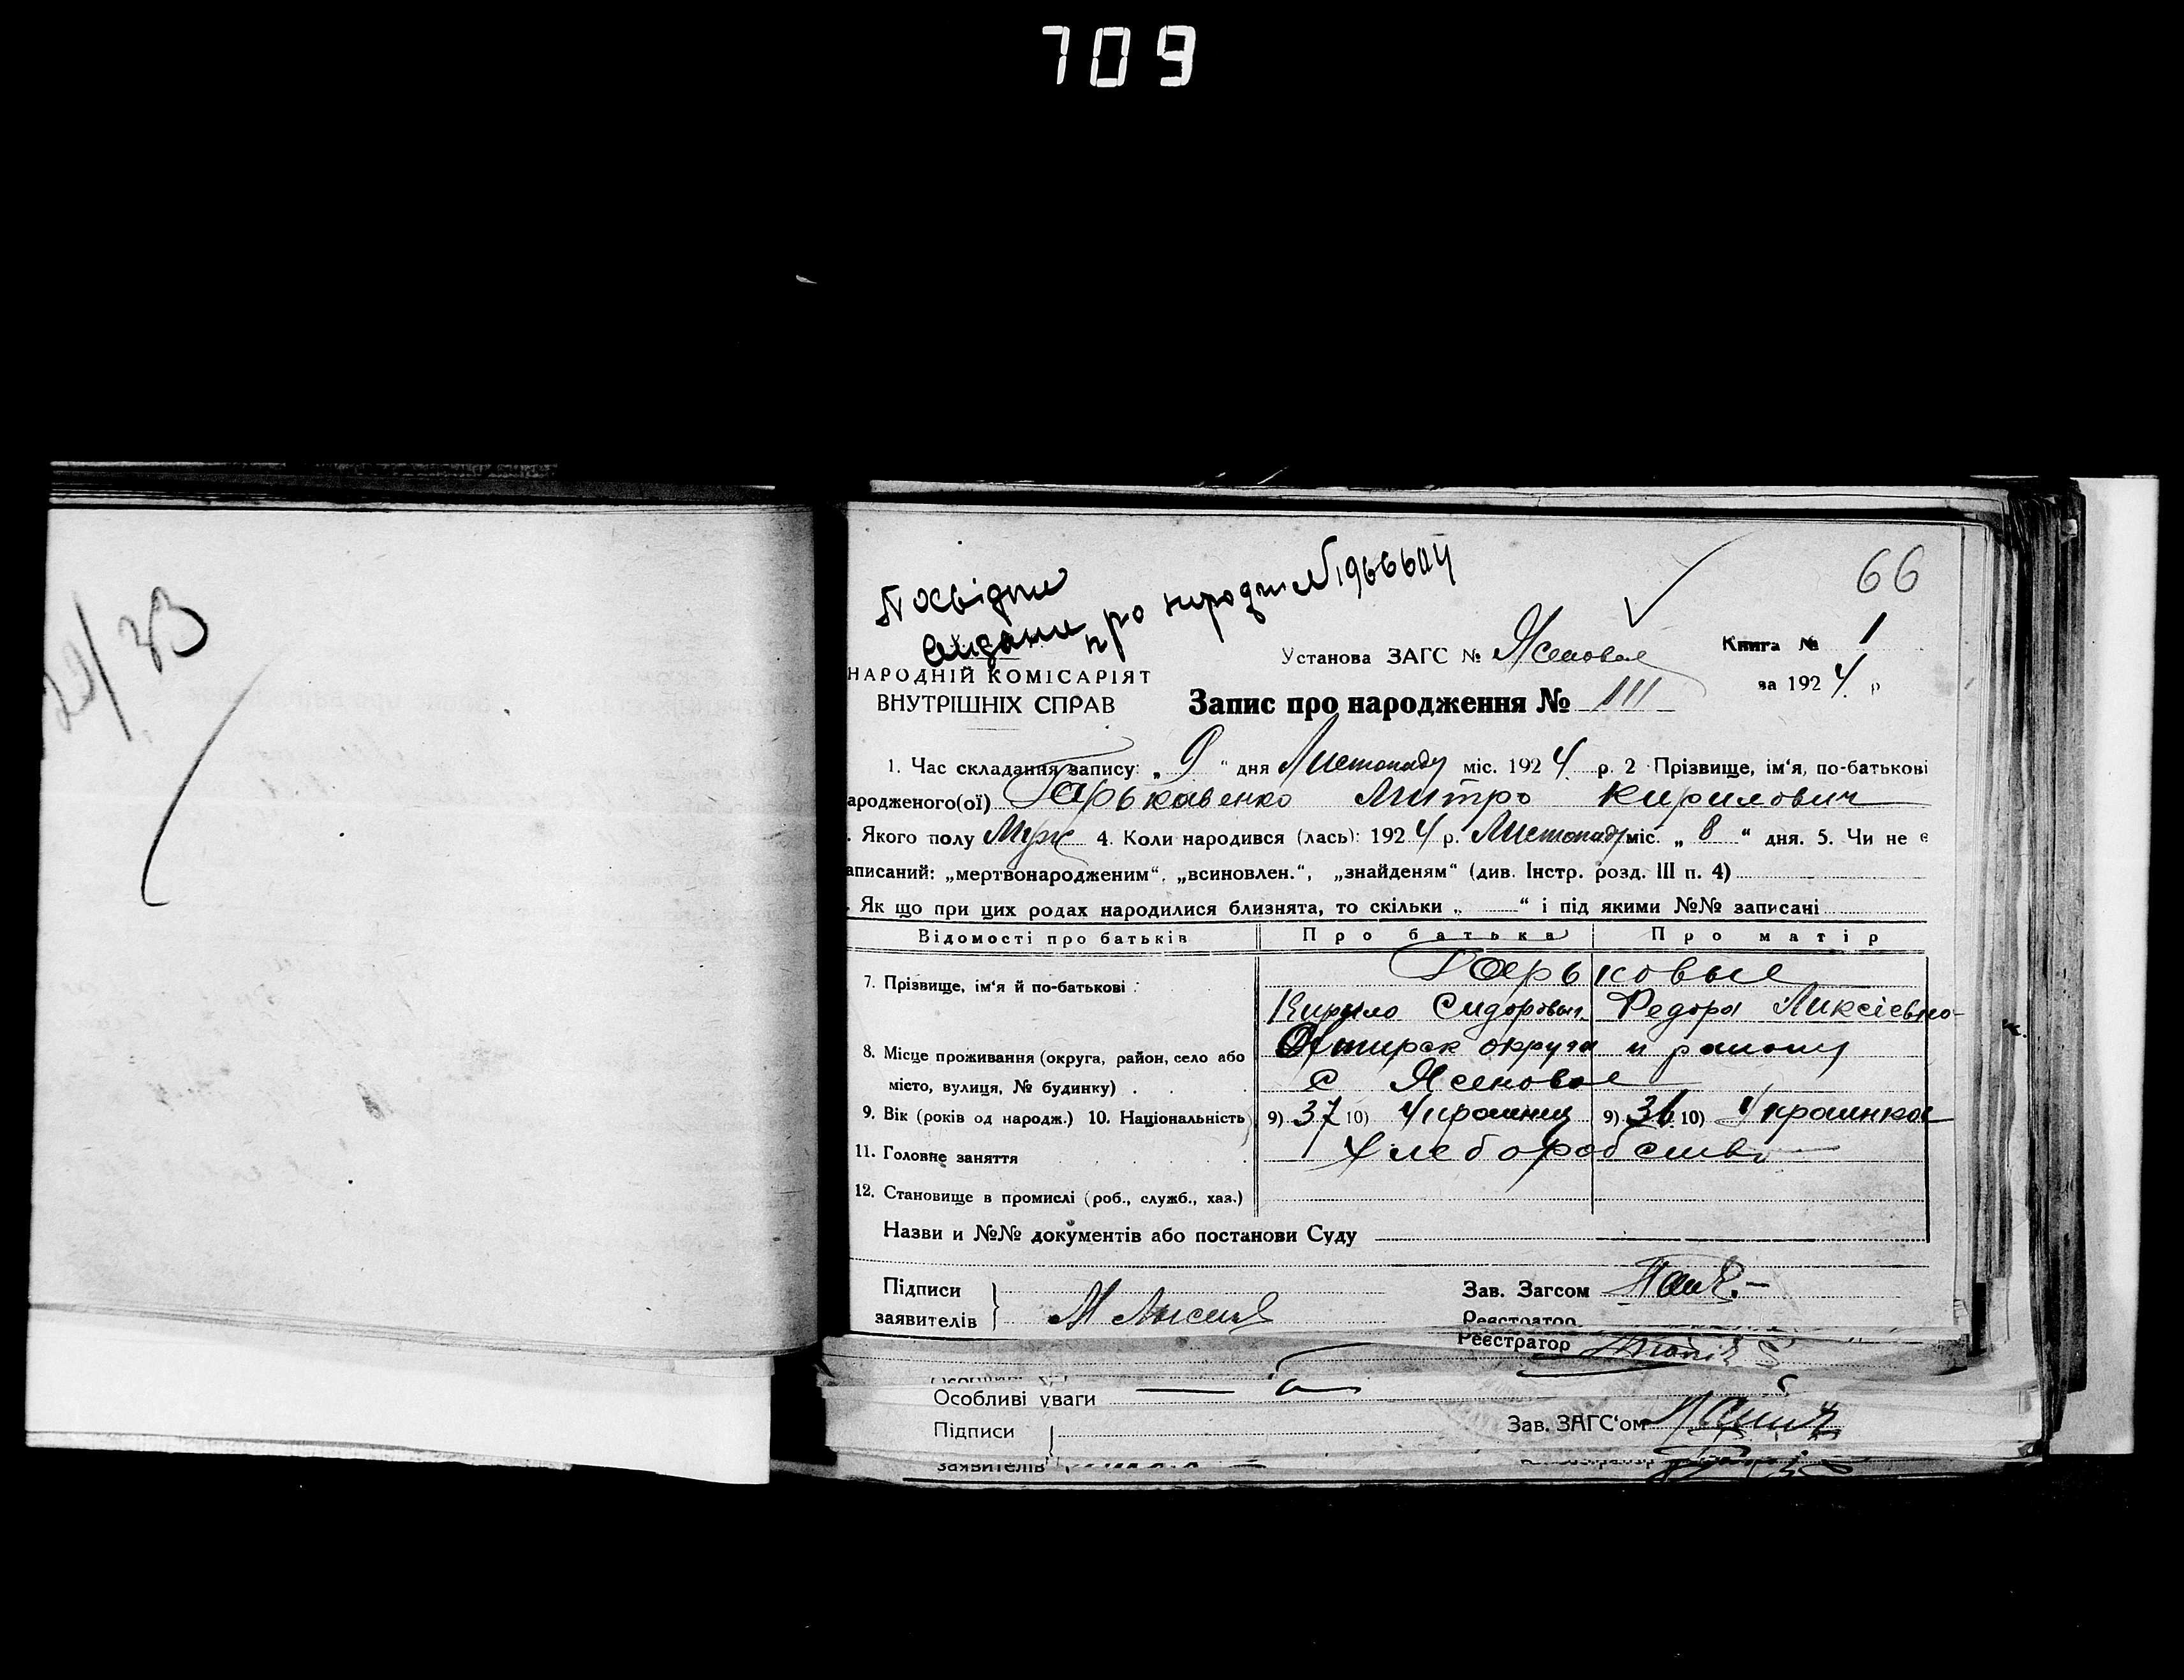 709
23
66
про
№ 1966604
Установа ЗАГС № Ясеновое
Книга № 1
НАРОДНІЙ КОМІСАРІЯТ
ВНУТРІШНІХ СПРАВ
за 1924 р
Запис про народження № 111
1. Час складання запису: „ 9 “ дня Листопаду міс. 1924 р. 2 Прізвище, ім'я, по-батькові
ародженого(ої) Гарькавенко Митро Кирилович
. Якого полу Муж 4. Коли народився (лась): 1924 р. Листопаду міс. „ 8 “ дня. 5. Чи не є
аписаний: „мертвонародженим“, „всиновлен.“, „знайденям“ (див. Інстр. розд. III п. 4)
. Як що при цих родах народилися близнята, то скільки „ “ і під якими №№ записані
Відомості про батьків Про батька Про матір
7. Прізвище, ім'я й по-батькові : Гарьковые
Кирило Сидорович Федора Ликсіевна
8. Місце проживання (округа, район, село або Охтирск округа и району
місто, вулиця, № будинку) . . . с Ясеновое
9. Вік (років од народж.) 10. Національність 9) 37 10) Украинец 9) 36 10) Украинка
11. Головне заняття Хлеборобство
12. Становище в промислі (роб., служб., хаз.)
Назви и №№ документів або постанови Суду
Підписи
Зав. Загсом
заявителів
Реєстратор
Реєстратор
Особливі уваги
Підписи
Зав. ЗАГС'ом
заявителів